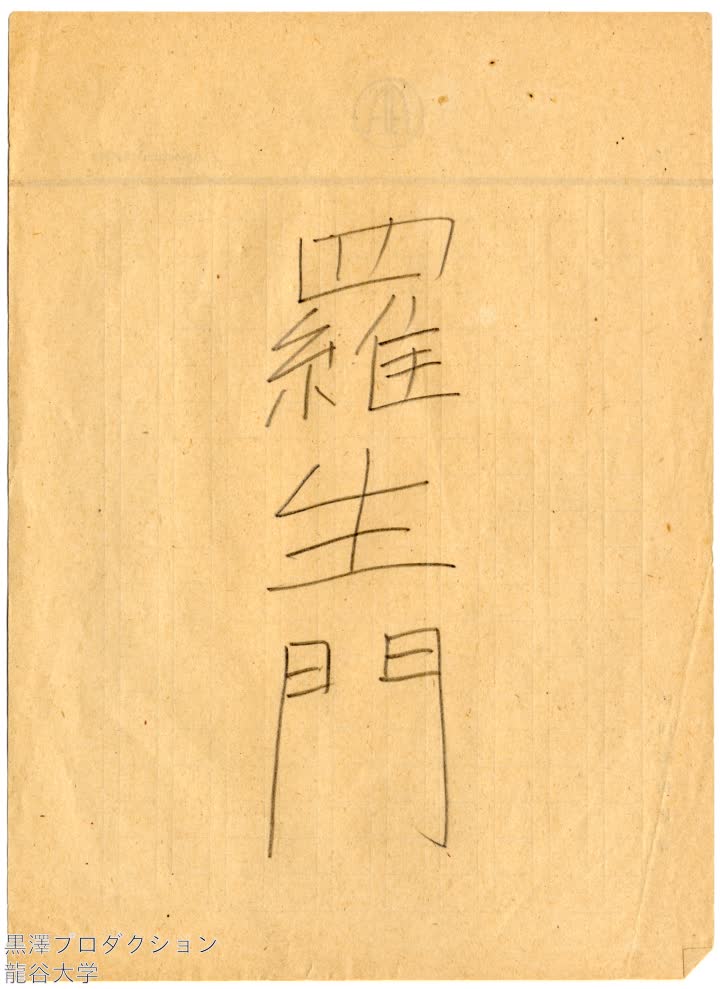 羅生門
黒澤プロダクション
龍谷大学